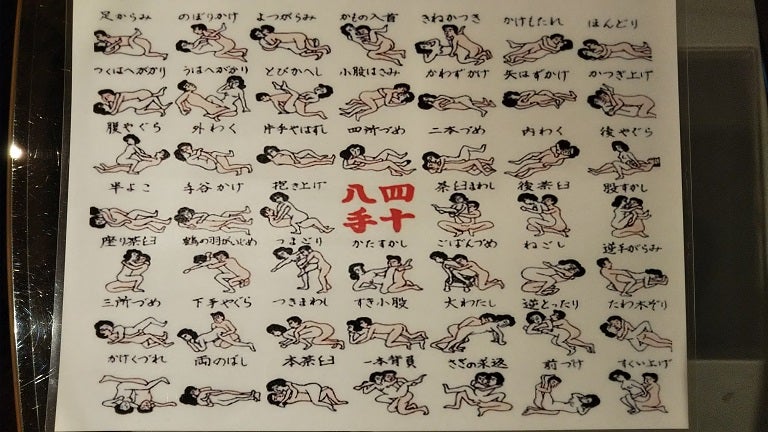 足からみ のぼりかけ よつがらみ かもの入首 きぬかつき かけもたれ ほんどり
つくはへがかり うはへがかり とびかへし 小股はさみ かわずかけ 矢はずかけ かつぎ上げ
腹やぐら 外わく 片手やはずれ 四所づめ 二本づめ 内わく 後やぐら
半よこ 手谷かけ 抱き上げ 四十八手 茶臼まわし 後茶臼 股すかし
座り茶臼 鶴の羽がいじめ つまどり かたすかし ごばんづめ ねごし 逆手がらみ
三所づめ 下手やぐら つきまわし すき小股 大わたし 逆とったり たわ木ぞり
かけくづれ 両のばし 本茶臼 一本背負 さざの菜返 前づけ すくい上げ